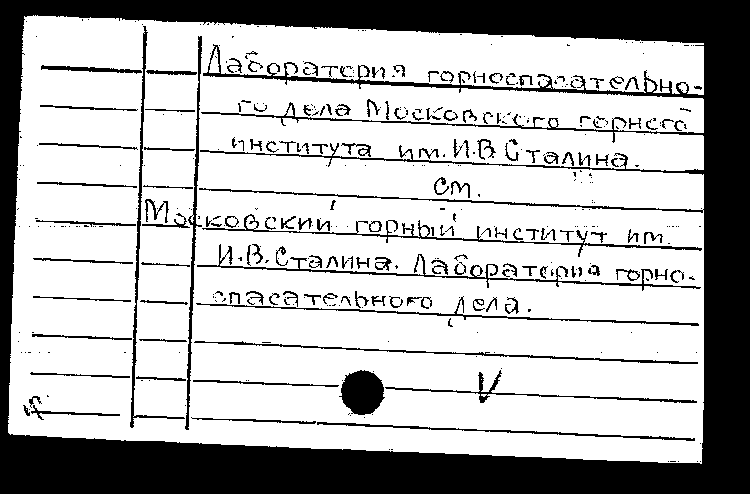 Лаборатория горноспасательно-
го дела Московского горного
института им. И.В. Сталина.
см.
Московский горный институт им.
И.В. Сталина. Лаборатория горно-
спасательного дела.
V